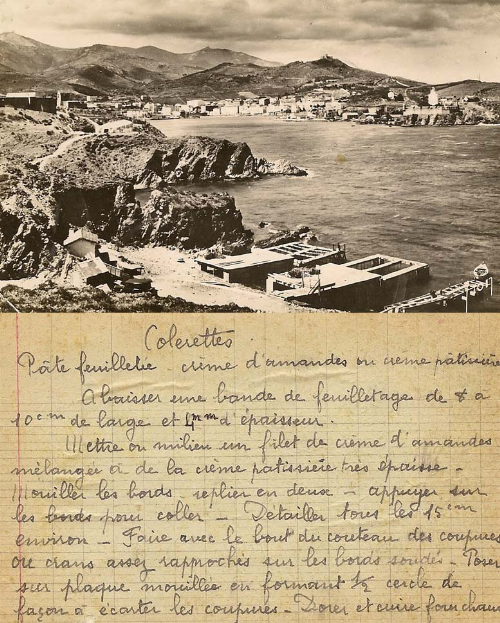 Colerettes
Pâte feuilletée crème d'amandes ou creme pâtissière
Abaisser une bande de feuilletage de 8 a
10 cm de large et 4 mm d'épaisseur.
Mettre au milieu un filet de crème d'amandes
mélangée à de la crème patissière très épaisse -
Mouiller les bords - replier en deux - appuyer sur
les bords pour coller - Detailler tous les 15 cm
environ - Faire avec le bout du couteau des coupures
ou crans assez rapprochés sur les bords soudés - Poser
sur plaque mouillée en formant 1/2 cercle de
façon à écarter les coupures - Dorer et cuire four chaud